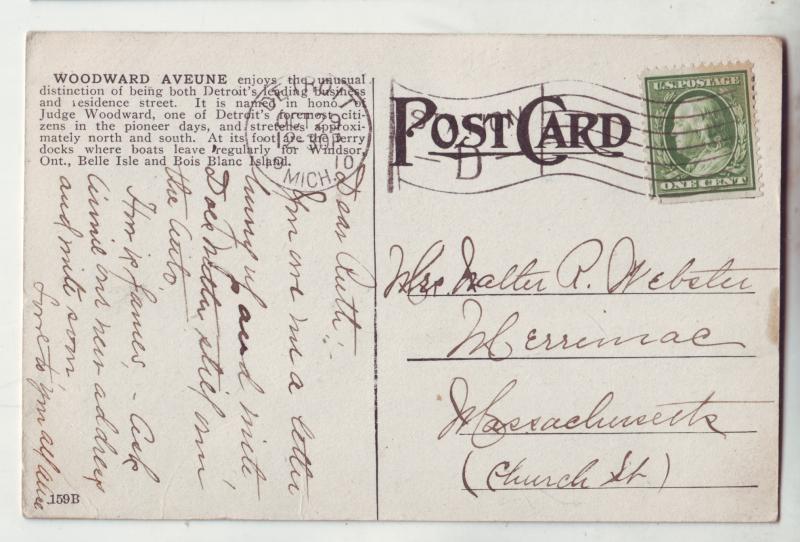 WOODWARD AVEUNE enjoys the unusual
distinction of being both Detroit's leading business
and residence street. It is named in honor of
Judge Woodward, one of Detroit's foremost citi-
zens in the pioneer days, and stretches approxi-
mately north and south. At its foot are the ferry
docks where boats leave regularly for Windsor,
Ont., Belle Isle and Bois Blanc Island.
Dear Ruth:-
You owe me a letter
hurry up and write
Does Mother still run
the Auto,
How is James, - Ask
Aunnie her new address
and write soon
Love to you all
159B
DETROIT
MICH.
10
D
POST CARD
U.S. POSTAGE
ONE CENT
Mrs. Walter R. Webster
Merrimac
Massachusetts
(Church St.)